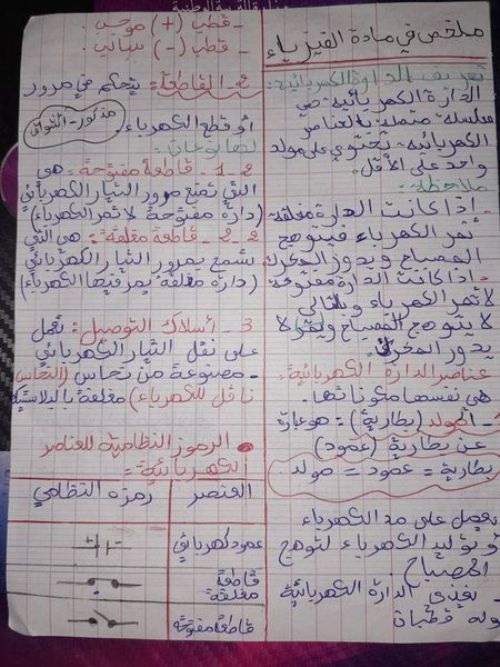 ملخص في مادة الفيزياء
تعريف الدارة الكهربائية:
الدارة الكهربائية هي
سلسلة متصلة بالعناصر
الكهربائية تحتوي على مولد
واحد على الأقل.
ملاحظة:
- إذا كانت الدارة مغلقة
تمر الكهرباء فيتوهج
المصباح ويدور المحرك
- إذا كانت الدارة مفتوحة
لا تمر الكهرباء وبالتالي
لا يتوهج المصباح ولا
يدور المحرك.
عناصر الدارة الكهربائية:
هي نفسها مكوناتها.
- المولد (بطارية): هو عبارة
عن بطارية (عمود)
بطارية = عمود = مولد
يعمل على مد الكهرباء
وتوليد الكهرباء لتوهج
المصباح
- يغذي الدارة الكهربائية
وله قطبان
- قطب (+) موجب.
- قطب (-) سالب.
2- القاطعة: يتحكم في مرور
أو قطع الكهرباء.
لها نوعان:
2-1- قاطعة مفتوحة: هي
التي تمنع مرور التيار الكهربائي
(دارة مفتوحة لا تمر الكهرباء)
2-2- قاطعة مغلقة: هي التي
تسمح بمرور التيار الكهربائي
(دارة مغلقة يمر فيها الكهرباء)
3- أسلاك التوصيل: تعمل
على نقل التيار الكهربائي
- مصنوعة من نحاس (النحاس
ناقل للكهرباء) مغلفة بالبلاستيك
الرموز النظامية للعناصر
الكهربائية:
العنصر رمزه النظامي
عمود كهربائي
قاطعة
مغلقة
قاطعة مفتوحة